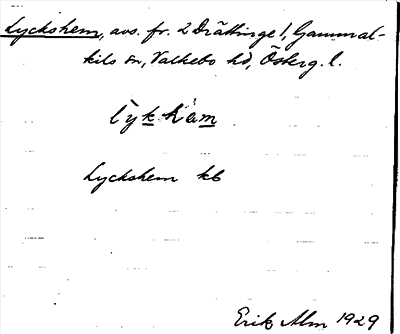 Lyckshem, avs. fr. 2 Drättinge 1, Gammal-
kils sn, Valkebo hd, Österg. l.
lykhem
Lyckshem kb
Erik Alm 1929